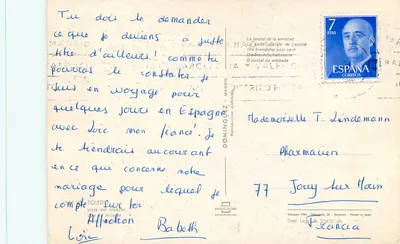 Tu dois te demander
ce que je deviens à juste
titre d'ailleurs! comme tu
pourras le constater je
suis en voyage pour
quelques jours en Espagne
avec Loïc mon fiancé. Je
te tiendrais au courant
en ce qui concerne notre
mariage pour lequel je
compte sur toi
Affection
Loïc Babeth
7
PTAS
ESPAÑA
CORREOS
La postal de la amistad
DOMINGUEZ - MADRID
Mademoiselle T. Lindemann
Pharmacien
77 Jouy sur Morin
Francia
TOLEDO